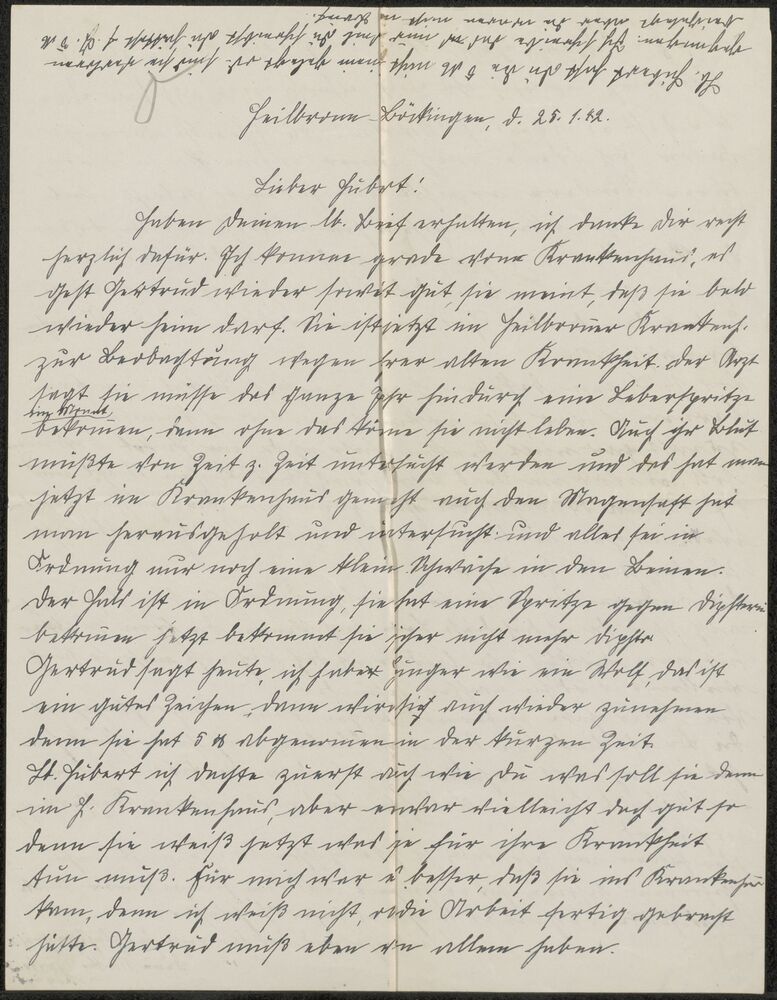 Heilbronn-Böckingen, d. 25.1.42.
Lieber Hubert!
Haben Deinen lb. Brief erhalten, ich danke Dir recht
herzlich dafür. Ich komme grade vom Krankenhaus, es
geht Gertrud wieder soweit gut sie meint, daß sie bald
wieder heim darf. Sie ist jetzt im Heilbronner Krankenh.
zur Beobachtung wegen ihrer alten Krankheit. Der Arzt
sagt sie müsse das ganze Jahr hindurch eine Leberspritze
im Monat,
bekommen, denn ohne das könne sie nicht leben. Auch ihr Blut
müßte von Zeit z. Zeit untersucht werden und das hat man
jetzt im Krankenhaus gemacht auch den Magensaft hat
man herausgeholt und untersucht und alles sei in
Ordnung nur noch eine klein Schwäche in den Beinen.
Der Hals ist in Ordnung, sie hat eine Spritze gegen Diphterie
bekommen jetzt bekommt sie sicher nicht mehr Diphte
Gertrud sagt heute, ich habe Hunger wie ein Wolf, das ist
ein gutes Zeichen, dann wird sich auch wieder zunehmen
denn sie hat 5 ℔ abgenommen in der kurzen Zeit.
Lb. Hubert ich dachte zuerst auch wie Du was soll sie denn
im H. Krankenhaus, aber es war vielleicht doch gut so
denn sie weiß jetzt was sie für ihre Krankheit
tun muß. Für mich war es besser, daß sie ins Krankenhaus
kam, denn ich weiß nicht, ob die Arbeit fertig gebracht
hätte. Gertrud muß eben von allem haben.